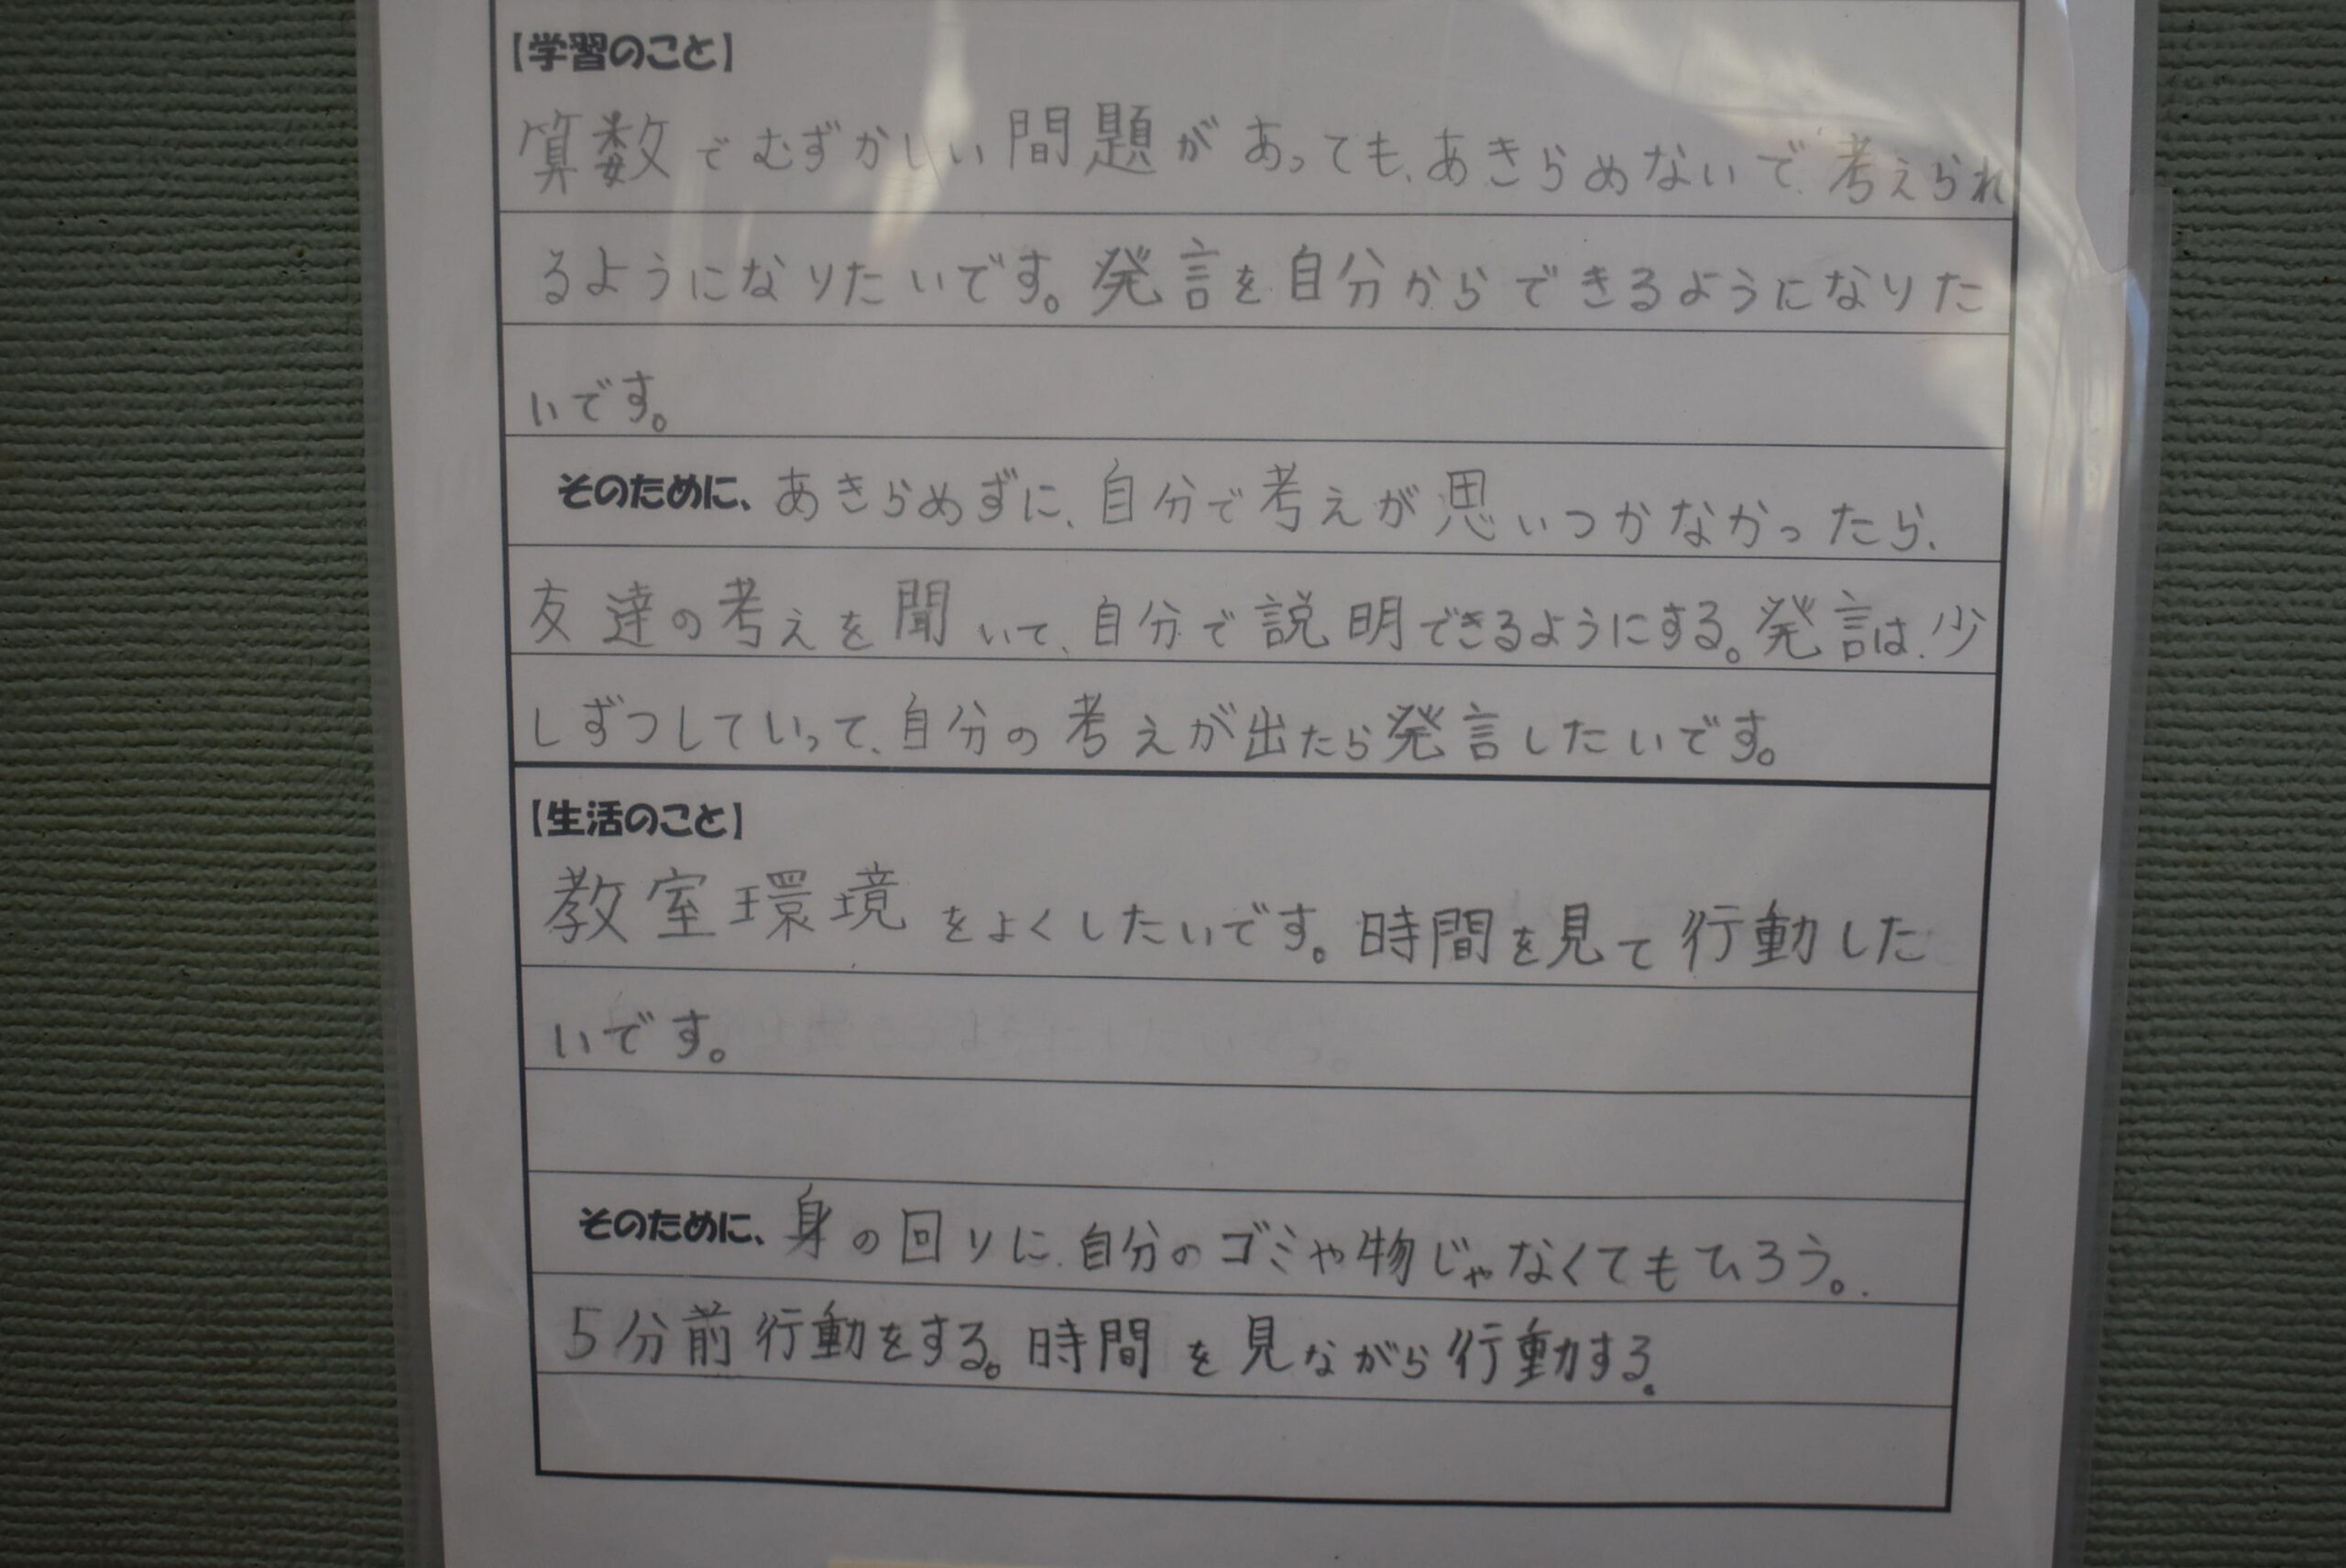 【学習のこと】
算数でむずかしい問題があっても、あきらめないで、考えられ
るようになりたいです。発言を自分からできるようになりた
いです。
そのために、あきらめずに、自分で考えが思いつかなかったら、
友達の考えを聞いて、自分で説明できるようにする。発言は、少
しずつしていって、自分の考えが出たら発言したいです。
【生活のこと】
教室環境をよくしたいです。時間を見て行動した
いです。
そのために、身の回りに、自分のゴミや物じゃなくてもひろう。
5分前行動をする。時間を見ながら行動する。